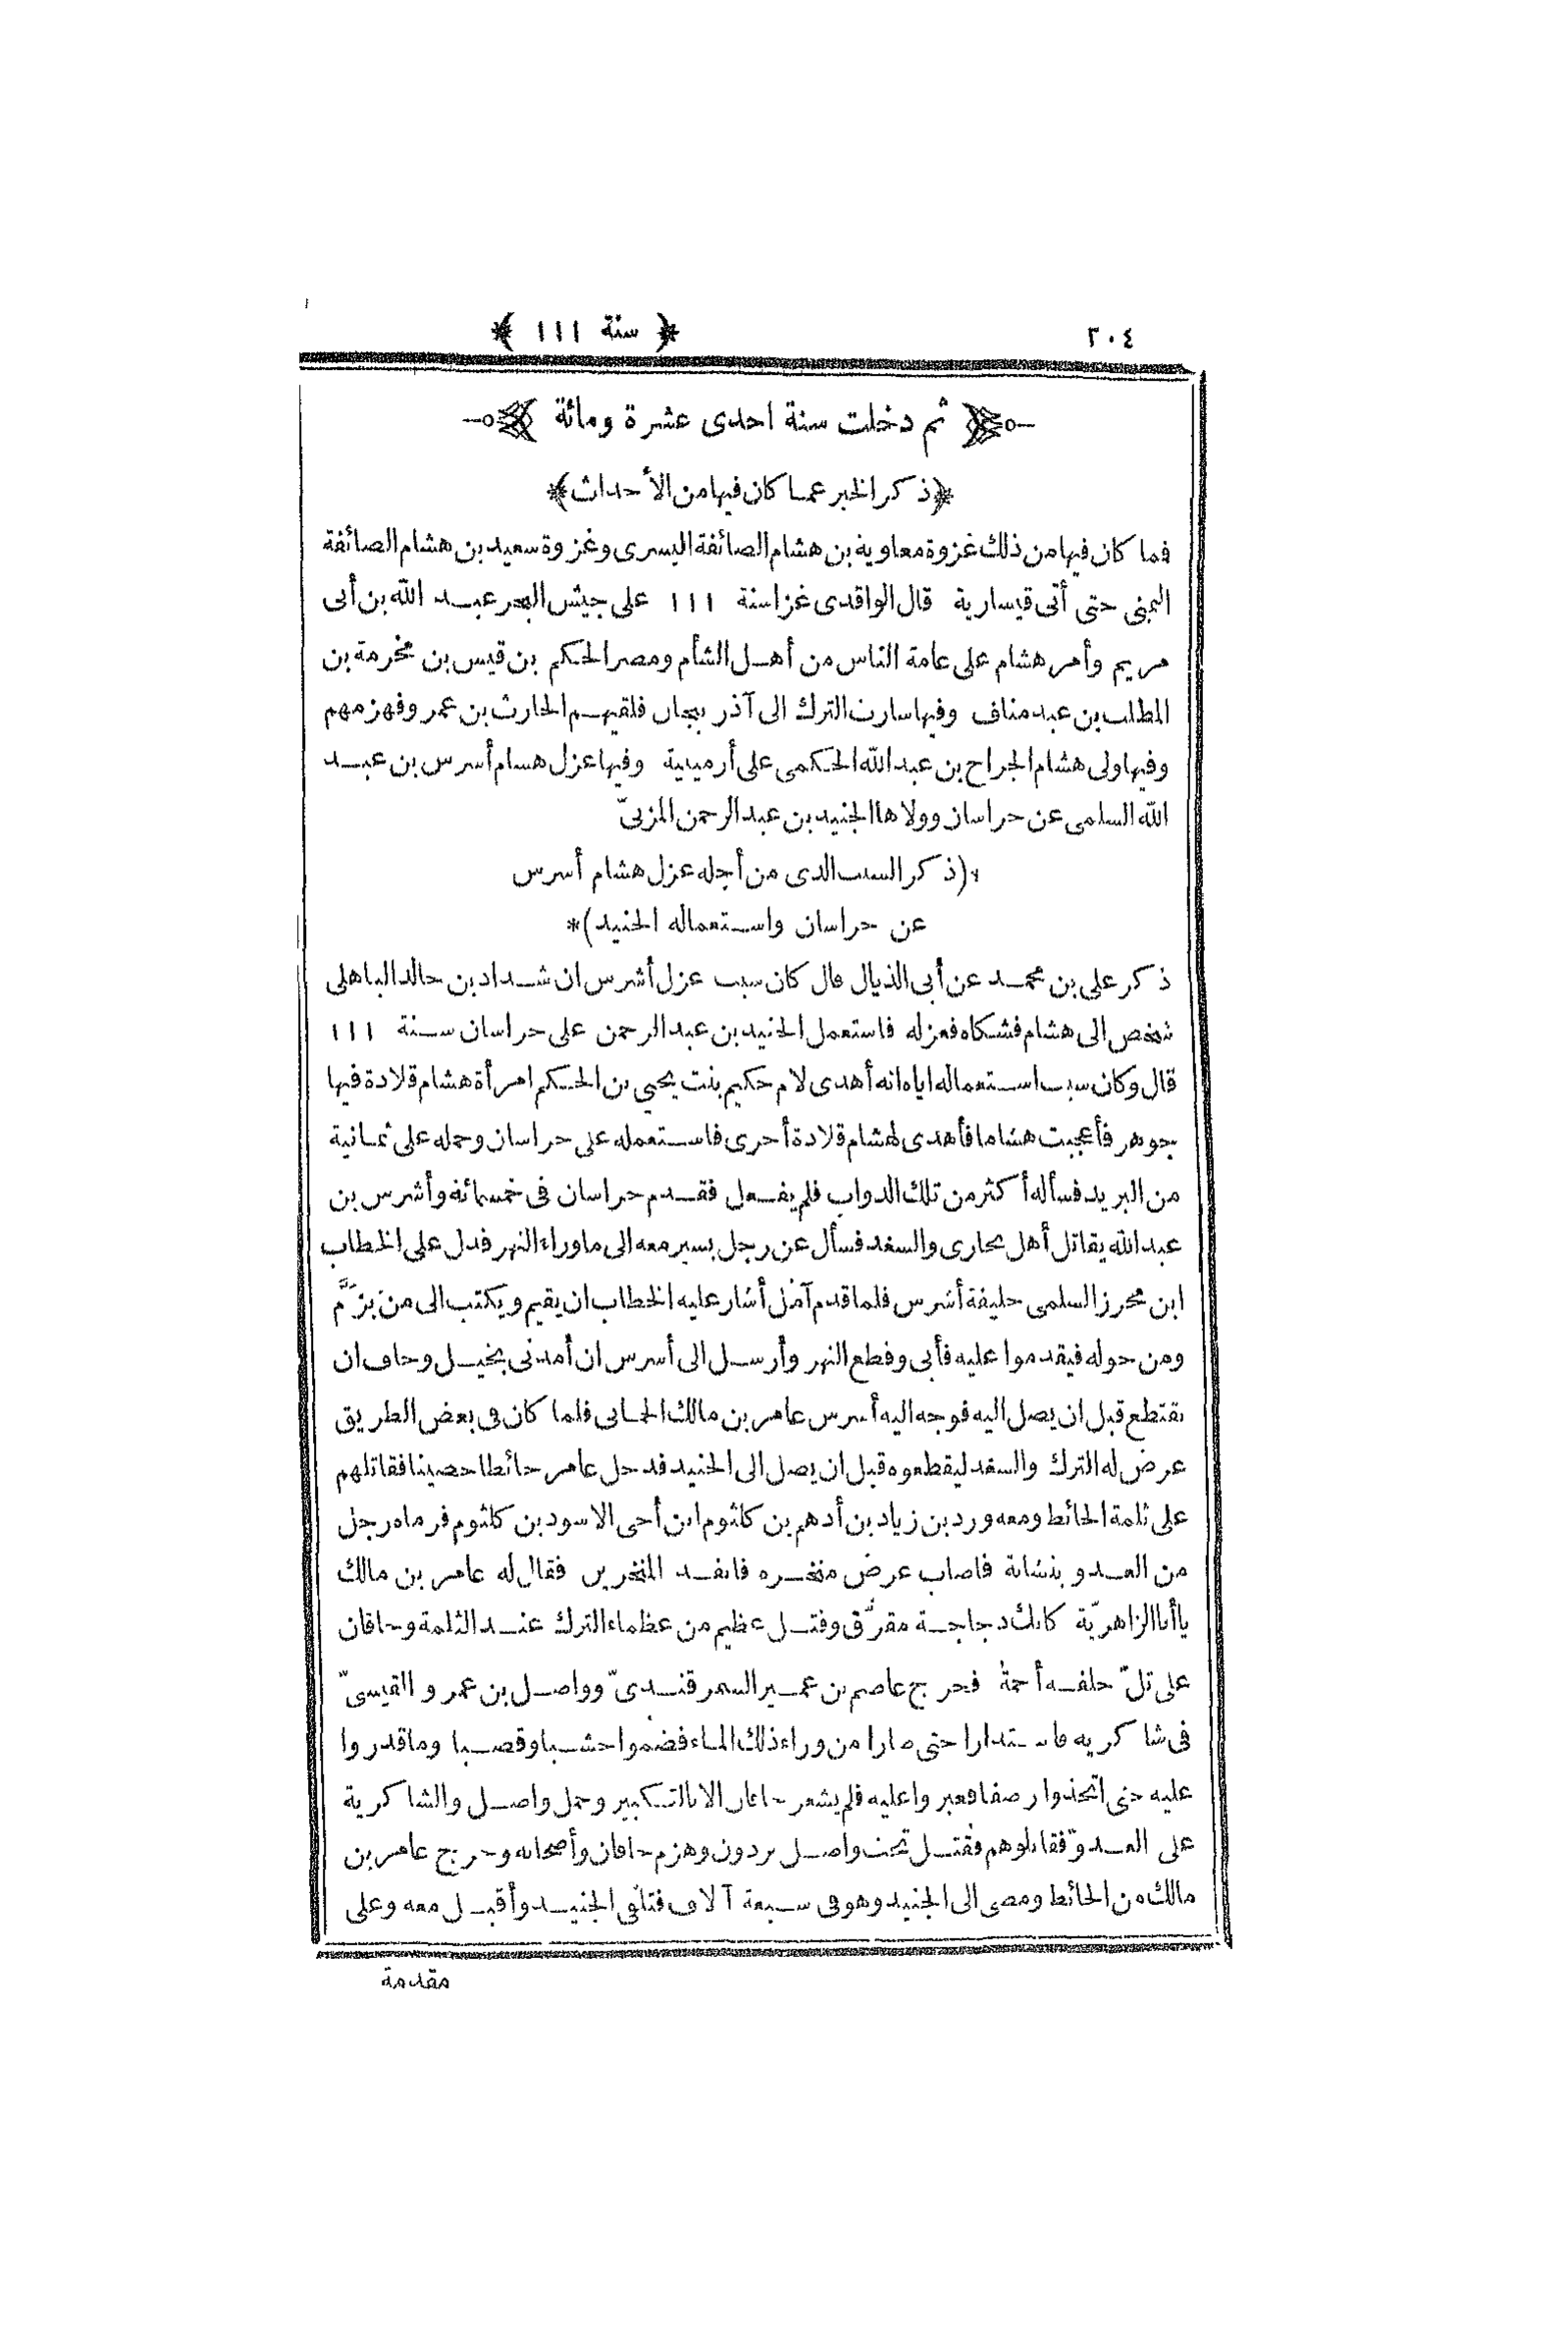 ٢٠٤
﴿ سنة ١١١ ﴾
﴿ ثم دخلت سنة احدى عشرة ومائة ﴾
﴿ذكر الخبر عما كان فيها من الأحداث﴾
فما كان فيها من ذلك غزوة معاوية بن هشام الصائفة اليسرى وغزوة سعيد بن هشام الصائفة
اليمنى حتى أتى قيسارية قال الواقدى غزا سنة ١١١ على جيش البحر عبد الله بن أبى
مريم وأمر هشام على عامة الناس من أهل الشأم ومصر الحكم بن قيس بن مخرمة بن
المطلب بن عبد مناف وفيها سارت الترك الى آذربيجان فلقيهم الحارث بن عمرو فهزمهم
وفيها ولى هشام الجراح بن عبد الله الحكمى على أرمينية وفيها عزل هشام أشرس بن عبد
الله السلمى عن خراسان وولاها الجنيد بن عبد الرحمن المزنىّ
*(ذكر السبب الذى من أجله عزل هشام أشرس
عن خراسان واستعماله الجنيد)*
ذكر على بن محمد عن أبى الذيال قال كان سبب عزل أشرس ان شداد بن خالد الباهلى
شخص الى هشام فشكاه فعزله فاستعمل الجنيد بن عبد الرحمن على خراسان سنة ١١١
قال وكان سبب استعماله اياه انه أهدى لام حكيم بنت يحيى بن الحكم امرأة هشام قلادة فيها
جوهر فأعجبت هشاما فأهدى لهشام قلادة أخرى فاستعمله على خراسان وحمله على ثمانية
من البريد فسأله أكثر من تلك الدواب فلم يفعل فقدم خراسان فى خمسمائة وأشرس بن
عبد الله يقاتل أهل بخارى والسغد فسأل عن رجل يسير معه الى ما وراء النهر فدل على الخطاب
ابن محرز السلمى خليفة أشرس فلما قدم آمُل أشار عليه الخطاب ان يقيم ويكتب الى من بزَمَّ
ومن حوله فيقدموا عليه فأبى وقطع النهر وأرسل الى أشرس ان أمدنى بخيل وخاف ان
يقتطع قبل ان يصل اليه فوجه اليه أشرس عامر بن مالك الحمانى فلما كان فى بعض الطريق
عرض له الترك والسغد ليقطعوه قبل ان يصل الى الجنيد فدخل عامر حائطا حصينا فقاتلهم
على ثلمة الحائط ومعه ورد بن زياد بن أدهم بن كلثوم ابن أخى الاسود بن كلثوم فرماه رجل
من العدو بنشابة فاصاب عرض منخره فانفذ المنخرين فقال له عامر بن مالك
يا أبا الزاهريّة كانك دجاجة مقرِّق وقتل عظيم من عظماء الترك عند الثلمة وخاقان
على تلّ خلفه أجمةٌ فخرج عاصم بن عمير السمرقندىّ وواصل بن عمرو القيسىّ
فى شاكريه فاستدارا حتى صارا من وراء ذلك الماء فضموا خشبا وقصبا وما قدروا
عليه حتى اتخذوا رصفا فعبروا عليه فلم يشعر خاقان الا بالتكبير وحمل واصل والشاكرية
على العدوّ فقاتلوهم فقُتل تحت واصل برذون وهزم خاقان وأصحابه وخرج عامر بن
مالك من الحائط ومضى الى الجنيد وهو فى سبعة آلاف فتلقى الجنيد وأقبل معه وعلى
مقدمة